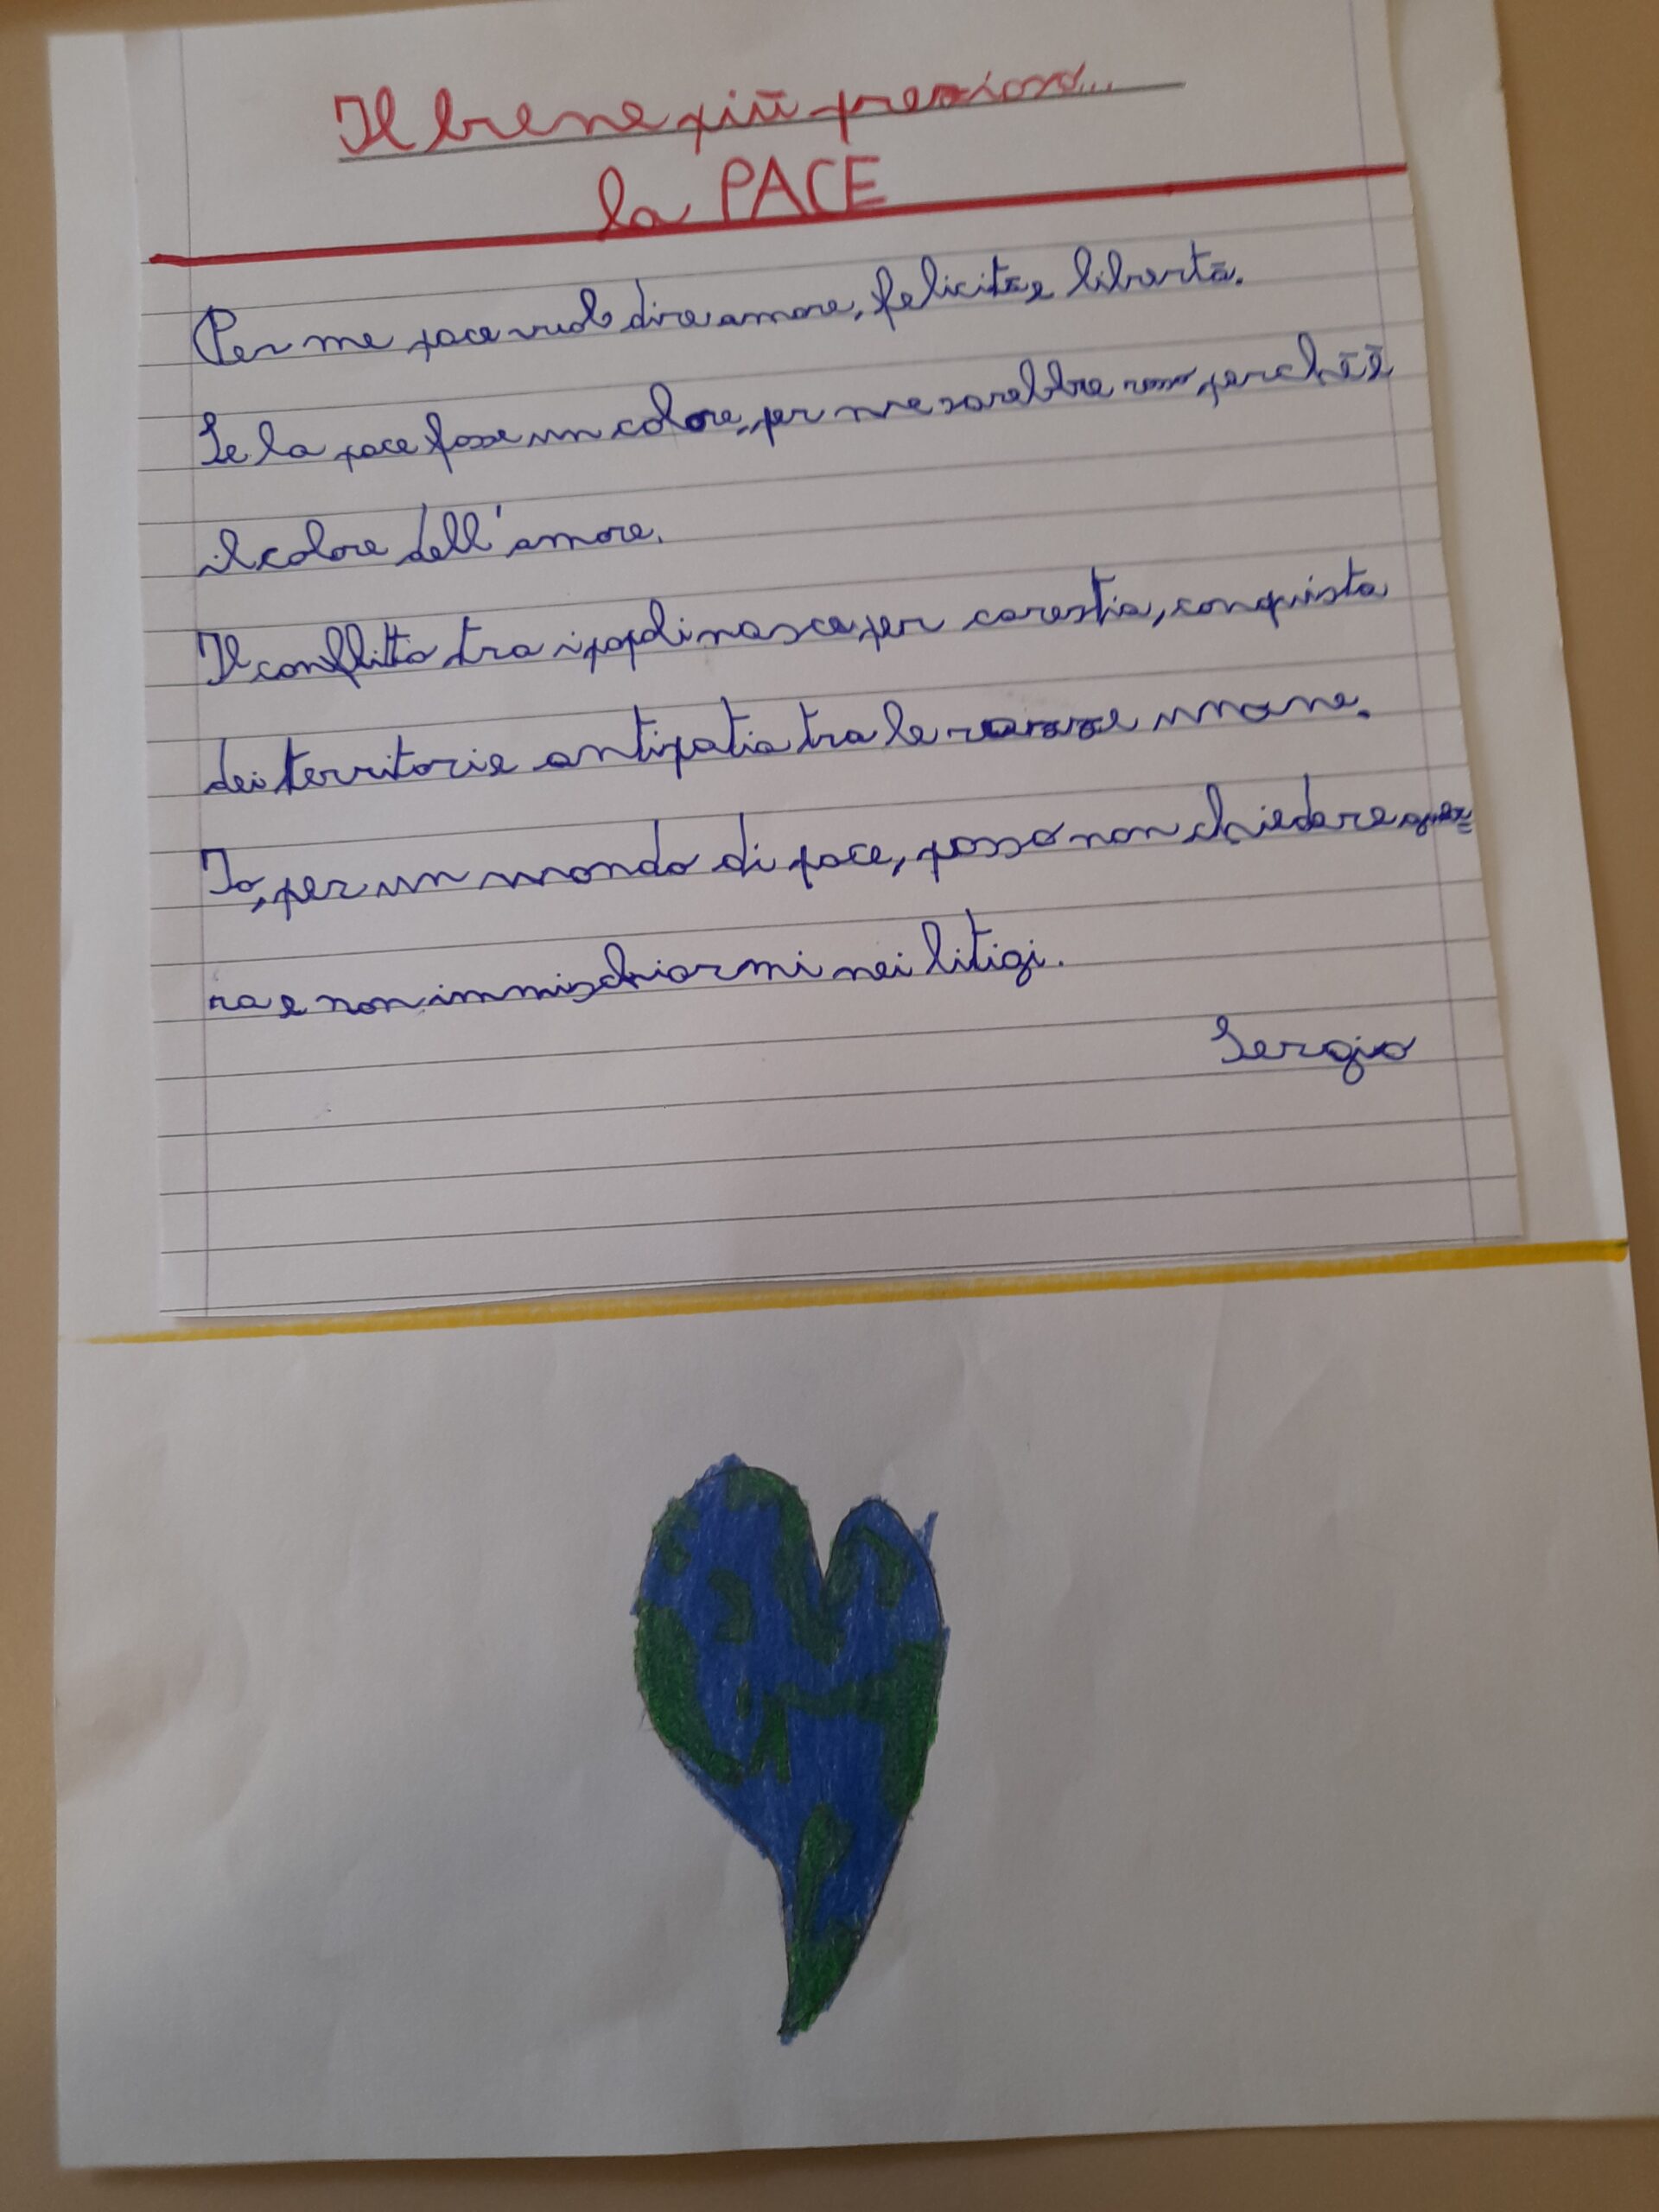 Il bene più prezioso...
la PACE
Per me pace vuol dire amore, felicità e libertà.
Se la pace fosse un colore, per me sarebbe rosso, perchè è
il colore dell'amore.
Il conflitto tra i popoli nasce per carestia, conquista
dei territori e antipatia tra le razze umane.
Io, per un mondo di pace, posso non chiedere guer=
ra e non immischiarmi nei litigi.
Sergio